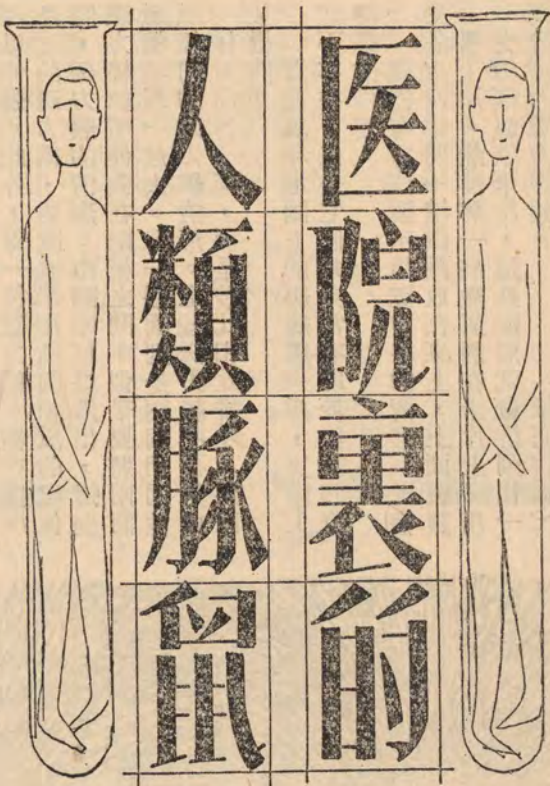 医院裏的
人類脉鼠